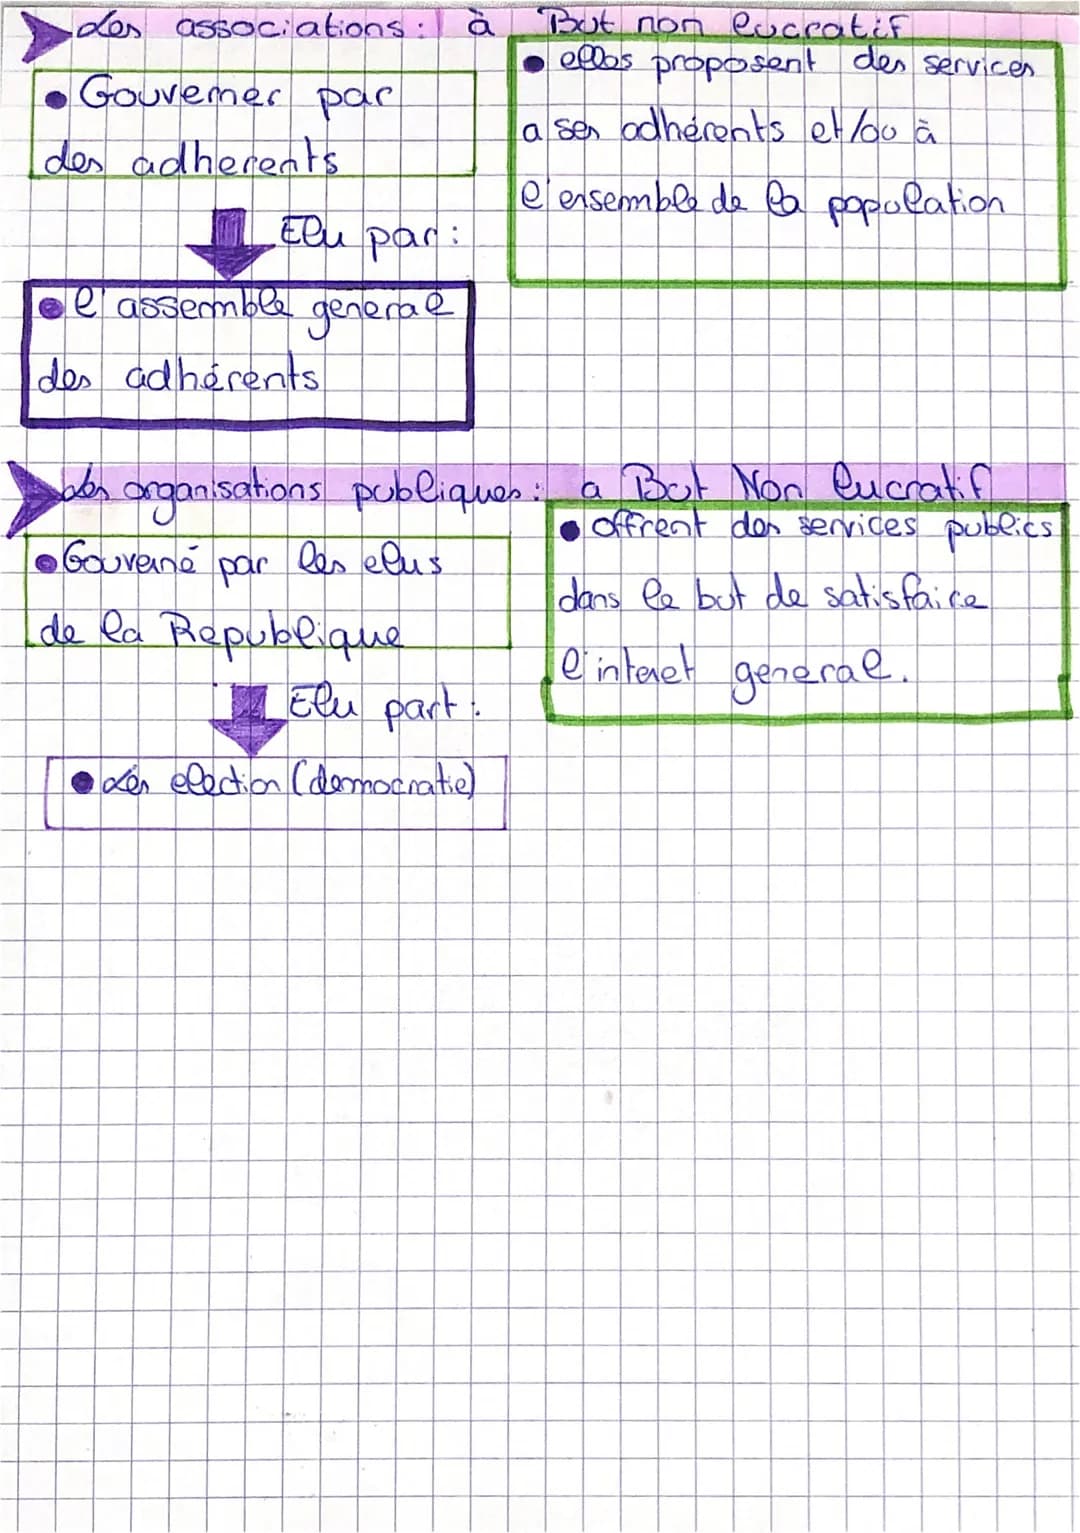 les associations : à But non lucratif
• Gouverner par
des adherents
Elu par :
• l'assemble general
des adhérents
• elles proposent des services
a ses adhérents et/ou à
l'ensemble de la population
les organisations publiques : a But Non lucratif
• Gouverné par les elus
de la Republique
Elu part :
• Les election (democratie)
• offrent des services publics
dans le but de satisfaire
l'interet general.